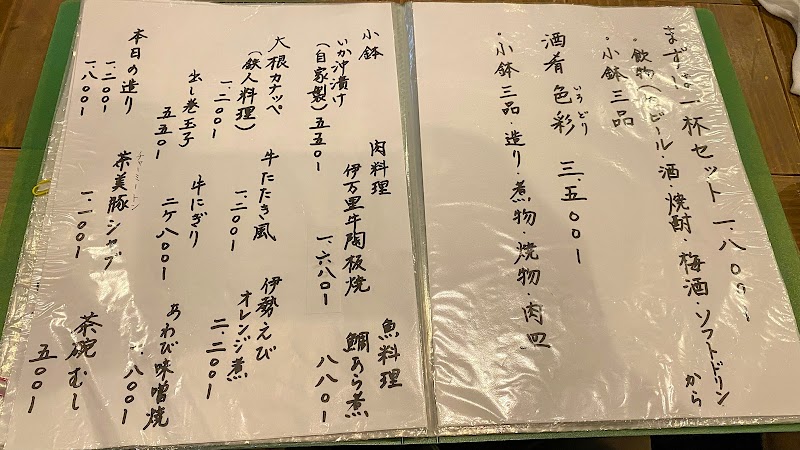 まずは一杯セット 一、八〇〇ー
・飲物(生ビール・酒・焼酎・梅酒・ソフトドリンクから
・小鉢三品
酒肴 色彩 三、五〇〇ー
いろどり
・小鉢三品・造り・煮物・焼物・肉皿
小鉢
いか沖漬け
(自家製) 五五〇ー
大根カナッペ
(鉄人料理)
一、二〇〇ー
出し巻玉子
五五〇ー
本日の造り
一、二〇〇ー
一、八〇〇ー
肉料理
伊万里牛陶板焼
一、六八〇ー
牛たたき風
一、二〇〇ー
牛にぎり
二ケ八〇〇ー
チャーミートン
茶美豚シャブ
一、一〇〇ー
魚料理
鯛あら煮
八八〇ー
伊勢えび
オレンジ煮
二、二〇〇ー
あわび味噌焼
一、八〇〇ー
茶碗むし
五〇〇ー